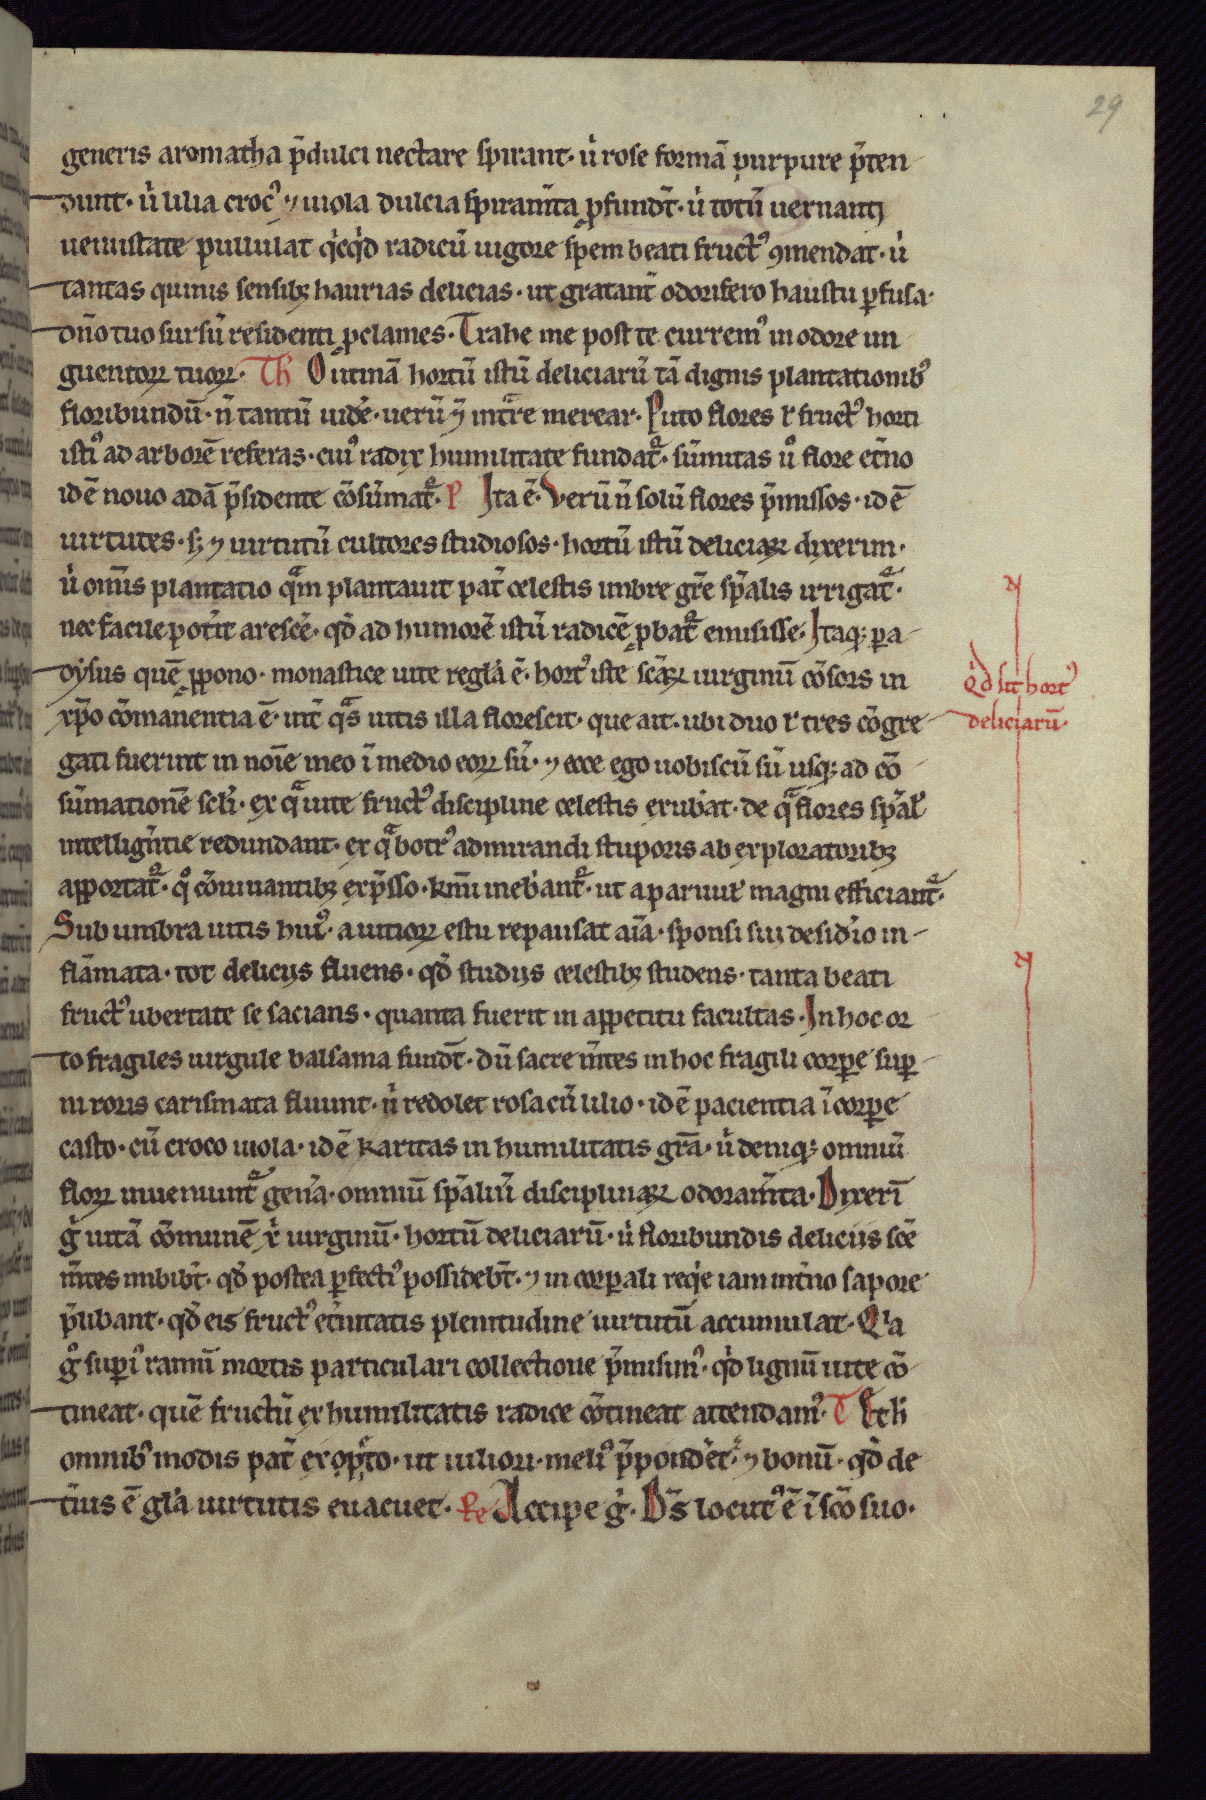 29
generis aromatha p̄dulci nectare spirant· ù rose formā purpure p̄ten
dunt· ù lilia croc᷒ ⁊ uiola dulcia spiram̄ta ꝓfundt̄· ù totū uernanti
uenustate pullulat qͥcqͥd radicū uigore spem beati fruct᷒ ꝯmendat· ù
tantas quinis sensibꝫ haurias delicias· ut gratant̄ odorifero haustu ꝑfusa·
dn̄o tuo sursū residenti ꝓclames· Trahe me post te currem᷒ in odore un
guentoꝝ tuoꝝ· Th̄ O utinā hortū istū deliciarū tā dignis plantationib᷒
floribundū· n̄ tantū uidē· uerū ⁊ intͣre merear· Puto flores ł fruct᷒ horti
isti᷒ ad arborē referas· cui᷒ radix humilitate fundat᷑· sūmitas ů flore et̄no
id ē nouo adā p̄sidente cōsūmat᷑· P Ita ē· Verū n̄ solū flores p̄missos· id ē
uirtutes· sꝫ ⁊ uirtutū cultores studiosos· hortū istū deliciaꝝ dixerim·
ù om̄is plantatio qͣm plantauit pat̄ celestis imbre gr̄e sp̄alis irrigat᷑·
nec facile pot̄it arescē· qd̄ ad humorē istū radicē ꝓbat᷑ emisisse· Itaqꝫ pa
dysus quē ꝓpono· monastice uite regl̄a ē· hort᷒ iste sc̄aꝝ uirginū cōsors in
xp̄o cōmanentia ē· int̄ qͣs uitis illa florescit· que ait· ubi duo ł tres cōgre
Qd̄ sit hort᷒
deliciarū·
gati fuerint in noīe meo ī medio eoꝝ sū· ⁊ ecce ego uobiscū sū usqꝫ ad cō
sūmationē sc̄li· ex qͣ uite fruct᷒ discipline celestis exub̄at· de qͣ flores sp̄al̄
intellign̄tie redundant· ex qͣ botr᷒ admirandi stuporis ab exploratoribꝫ
apportat᷑· qͦ cōuiuantibꝫ exp̄sso· kmī ineb̄ant᷑· ut a paruul̄ magni efficiant᷑·
Sub umbra uitis hui᷒· a uitioꝝ estu repausat aīa· sponsi sui desid̄io in
flāmata· tot delicijs fluens· qd̄ studijs celestibꝫ studens· tanta beati
fruct᷒ ubertate se sacians· quanta fuerit in appetitu facultas· In hoc or
to fragiles uirgule balsama fundt̄· dū sacre m̄tes in hoc fragili corꝑe suꝑ
ni roris carismata fluunt· ù redolet rosa cū lilio· id ē pacientia ī corꝑe
casto· cū croco uiola· id ē karitas in humilitatis gr̄a· ù deniqꝫ omniū
floꝝ inueniunt᷑ gen̄a· omniū sp̄aliū disciplinaꝝ odoram̄ta· Dixerī
g̊ uitā cōmunē xͥ uirginū· hortū deliciarū· ù floribundis deliciis sc̄e
m̄tes imbibt̄· qd̄ postea ꝑfecti᷒ possidebt̄· ⁊ in corꝑali reqͥe iam int̄no sapore
p̄libant· qd̄ eis fruct᷒ et̄nitatis plenitudine uirtutū accumulat· Qͥa
g̊ suꝑi᷒ ramū mortis particulari collectione p̄misim᷒· qd̄ lignū uite cō
tineat· quē fructū ex humilitatis radice cōtineat attendam᷒· T
omnib᷒ modis pat̄ exopto· ut uiliori· meli᷒ p̄pondēt· ⁊ bonū· qd̄ de
t̄ius ē gl̄a uirtutis euacuet· Pe Accipe g̊· Ds̄ locut᷒ ē ī sc̄o suo·